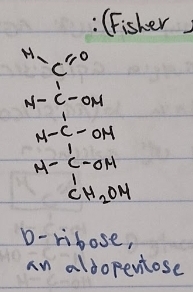 :(Fisher
H
C=O
H-C-OH
H-C-OH
H-C-OH
CH₂OH
D-ribose,
an aldopentose